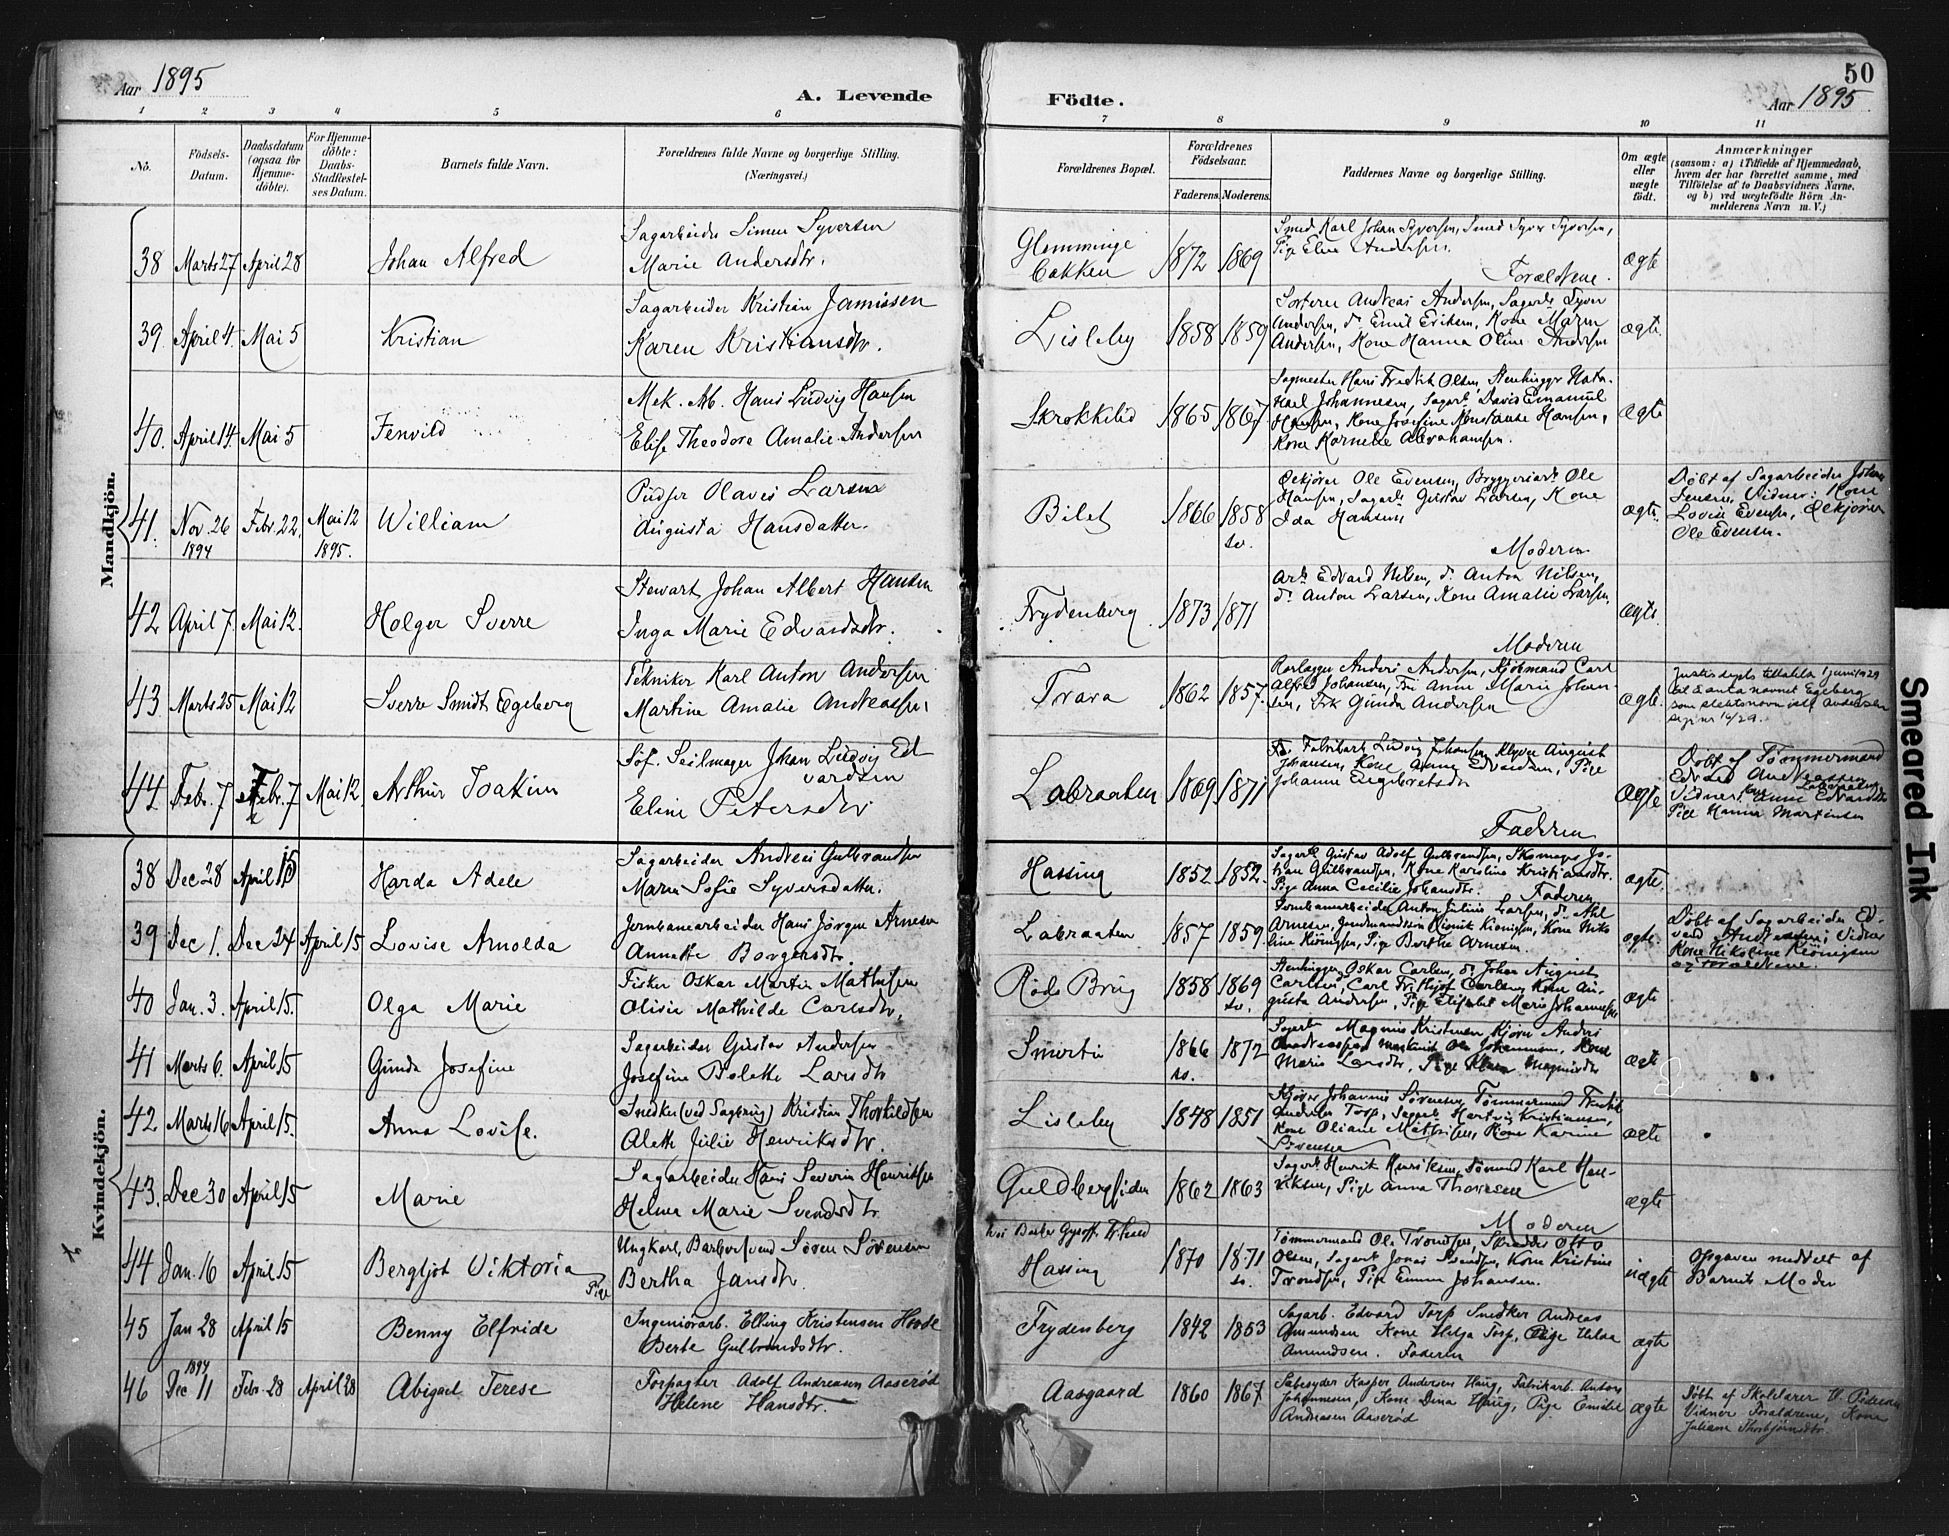 Aar 1895
A. Levende
Födte.
50
Aar 1895
1 2 3 4 5 6 7 8 9 10 11
No.
Födsels-Datum.
Daabsdatum (ogsaa for Hjemmedöbte).
For Hjemmedöbte: Daabs-Stadfæstelses Datum.
Barnets fulde Navn.
Forældrenes fulde Navne og borgerlige Stilling.
(Næringsvei.)
Forældrenes Bopæl.
Forældrenes Födselsaar.
Faderens. Moderens.
Faddernes Navne og borgerlige Stilling.
Om ægte eller uægte födt.
Anmærkninger
(saasom: a) i Tilfælde af Hjemmedaab,
hvem der har forrettet samme, med
Tilföielse af to Daabsvidners Navne,
og b) ved uægtefödte Börn An-
melderens Navn m. V.)
Mandkjön.
38 Marts 27 April 28 Johan Alfred
Sagarbeider Simen Syversen
Marie Andersdtr.
Glemminge bakken 1872 1869
Smed Karl Johan Syversen, Smed Syver Syversen,
Pige Elen Andersen.
Forældrene.
ægte
39 April 4. Mai 5 Kristian
Sagarbeider Kristian Jamissen
Karen Kristiansdtr.
Lisleby 1858 1859
Andreas Andersen, Sagarb. Syver
Andersen, d. Emil Eriksen, Kone Maren
Andersen, Kone Hanna Oline Andersen
ægte.
40. April 14 Mai 5 Fenvild
Mek. Arb. Hans Ludvig Hansen
Elise Theodore Amalie Andersen
Skrokkelid 1865 1867
Sagmester Hans Fredrik Olsen, Stenhugger
Karl Johannesen, Sagarb. David Emanuel
Hansen, Kone Josefine Konstanse Hansen,
Kone Kornelie Abrahamsen.
ægte
41. Nov. 26 1894 Febr. 22. Mai 12 1895. William
Pudser Olavis Larsen
Augusta Hansdatter.
Bilet 1866 1858 sv.
Ølkjører Ole Evensen, Bryggeriarb. Ole
Hansen, Sagarb. Gustav Larsen, Kone
Ida Hansen
Moderen
ægte.
Døbt af Sagarbeider Johan
Jensen, Vidner: Kone
Lovise Evensen, Ølkjører
Ole Evensen.
42 April 7. Mai 12. Holger Sverre
Stewart Johan Albert Hansen
Inga Marie Edvardsdtr.
Frydenberg 1873 1871
Arb. Edvard Nilsen, d. Anton Nilsen,
d. Anton Larsen, Kone Amalie Larsen,
Moderen
ægte.
43. Marts 25 Mai 12 Sverre Smidt Egeberg
Tekniker Karl Anton Andersen
Martine Amalie Andreassen,
Trara 1862 1857.
Rørlægger Anders Andersen, Kjöbmand Carl
Alfred Johansen, Fru Anne Marie Johan-
sen, Frk Gunda Andersen
ægte.
Justisdepts tillatelse 1 juni 1929
til å anta navnet Egeberg
som slektsnavn istf. Andersen
44 Febr. 7 Febr. 7 Mai 12 Arthur Joakim
Søf. Seilmager Johan Ludvig Ed
vardsen
Eline Petersdtr
Labraaten 1869 1871
Fabrikarb. Ludvig Johansen, August
Johansen, Kone Anne Edvardsen, Pige
Johanne Engebretsdtr
Faderen
ægte
Døbt af Tømmermand
Edvard Andreassen
Labraaten
Vidner: Anne Edvardsen
Pige Hanna Martinsen
Kvindekjön.
38 Dec 28 April 15 Harda Adele
Sagarbeider Andreas Gulbrandsen
Maren Sofie Syversdatter.
Hassing 1852 1852.
Sagarb. Gustav Adolf Gulbrandsen, Skomager Jo-
han Gulbrandsen, Kone Karoline Kristiansdtr.
Pige Anna Cecilie Johansdtr.
Faderen
ægte.
39 Dec 1. Dec 24 April 15 Lovise Arnolda
Jernbanearbeider Hans Jörgen Arnesen
Annette Borgersdtr.
Labraaten 1857 1859.
Jernbanearbeider Anton Julius Larsen,
Pige Berthe Arnesen.
ægte.
Døbt af Sagarbeider Ed-
vard Andersen; Vidner
Kone Nikoline
og Forældrene.
40 Jan. 3. April 15. Olga Marie
Fisker Oskar Martin Mathisen
Olivie Mathilde Carlsdtr.
Røds Brug 1858 1869 sv.
Stenhugger Oskar Carlsen, d. Johan August
Carlsen, Carl Frithjof Carlsen, Kone Au-
gusta Andersen, Pige Elisabet Marie Johannesen
ægte
41 Marts 6. April 15 Gunda Josefine
Sagarbeider Gustav Andersen
Josefine Bolette Larsdtr
Smertu 1866 sv. 1872
Sagarb. Magnus Kristensen, Kjører Anders
Andreassen, Ole Johannesen, Kone
Maren Larsdtr, Pige Magnusdtr
ægte
42 Marts 16 April 15. Anna Lovise.
Snedker (ved Sagbrug) Kristian Thorkildsen
Aleth Julie Henriksdtr
Lisleby 1848 1851
Kjører Johannes Sørensen, Tømmermand Fredrik
Torp, Sagarb. Hartvig Kristiansen,
Kone Oliane Mathisen, Kone Karine
Sørensen
ægte
43. Dec 30 April 15 Marie
Sagarbeider Hans Severin Henriksen
Helma Marie Svendsdtr
Guldbergsiden 1862 1863
Sagarb. Henrik Henriksen, Sømand Karl Hen-
riksen, Pige Anna Thoresen
Moderen
ægte
44 Jan. 16 April 15 Bergljot Viktoria
Ungkarl, Barbersvend Søren Sørensen
Pige Bertha Jansdtr.
Hassing 1870 1871 sv.
Tømmermand Ole Trondsen, Skrædder Otto
Olsen, Sagarb. Jonas Svendsen, Kone Kristine
Trondsen, Pige Emma Johansen.
uægte
Opgaven meddelt af
Barnets Moder
45 Jan 28 April 15 Benny Elfride
Ingeniörarb. Elling Kristensen Hovde
Berte Gulbrandsdtr.
Frydenberg 1842 1853
Sagarb. Edvard Torp Snedker Andreas
Amundsen Kone Helga Torp, Pige Hilda
Amundsen. Faderen
ægte
46 1894 Dec 11 Febr. 28 April 28 Abigael Terese
Forpagter Adolf Andreasen Aaserød
Helene Hansdtr.
Aasgaard 1860 1867
Sæbesyder Kasper Andersen Haug, Fabrikarb. Anton
Johannesen, Kone Dina Haug, Pige Emilie
Andreasen Aaserød
ægte
Døbt af Skolelærer O. Pedersen
Vidner Forældrene, Kone
Juliane Thorbjørnsdtr.
Smeared Ink